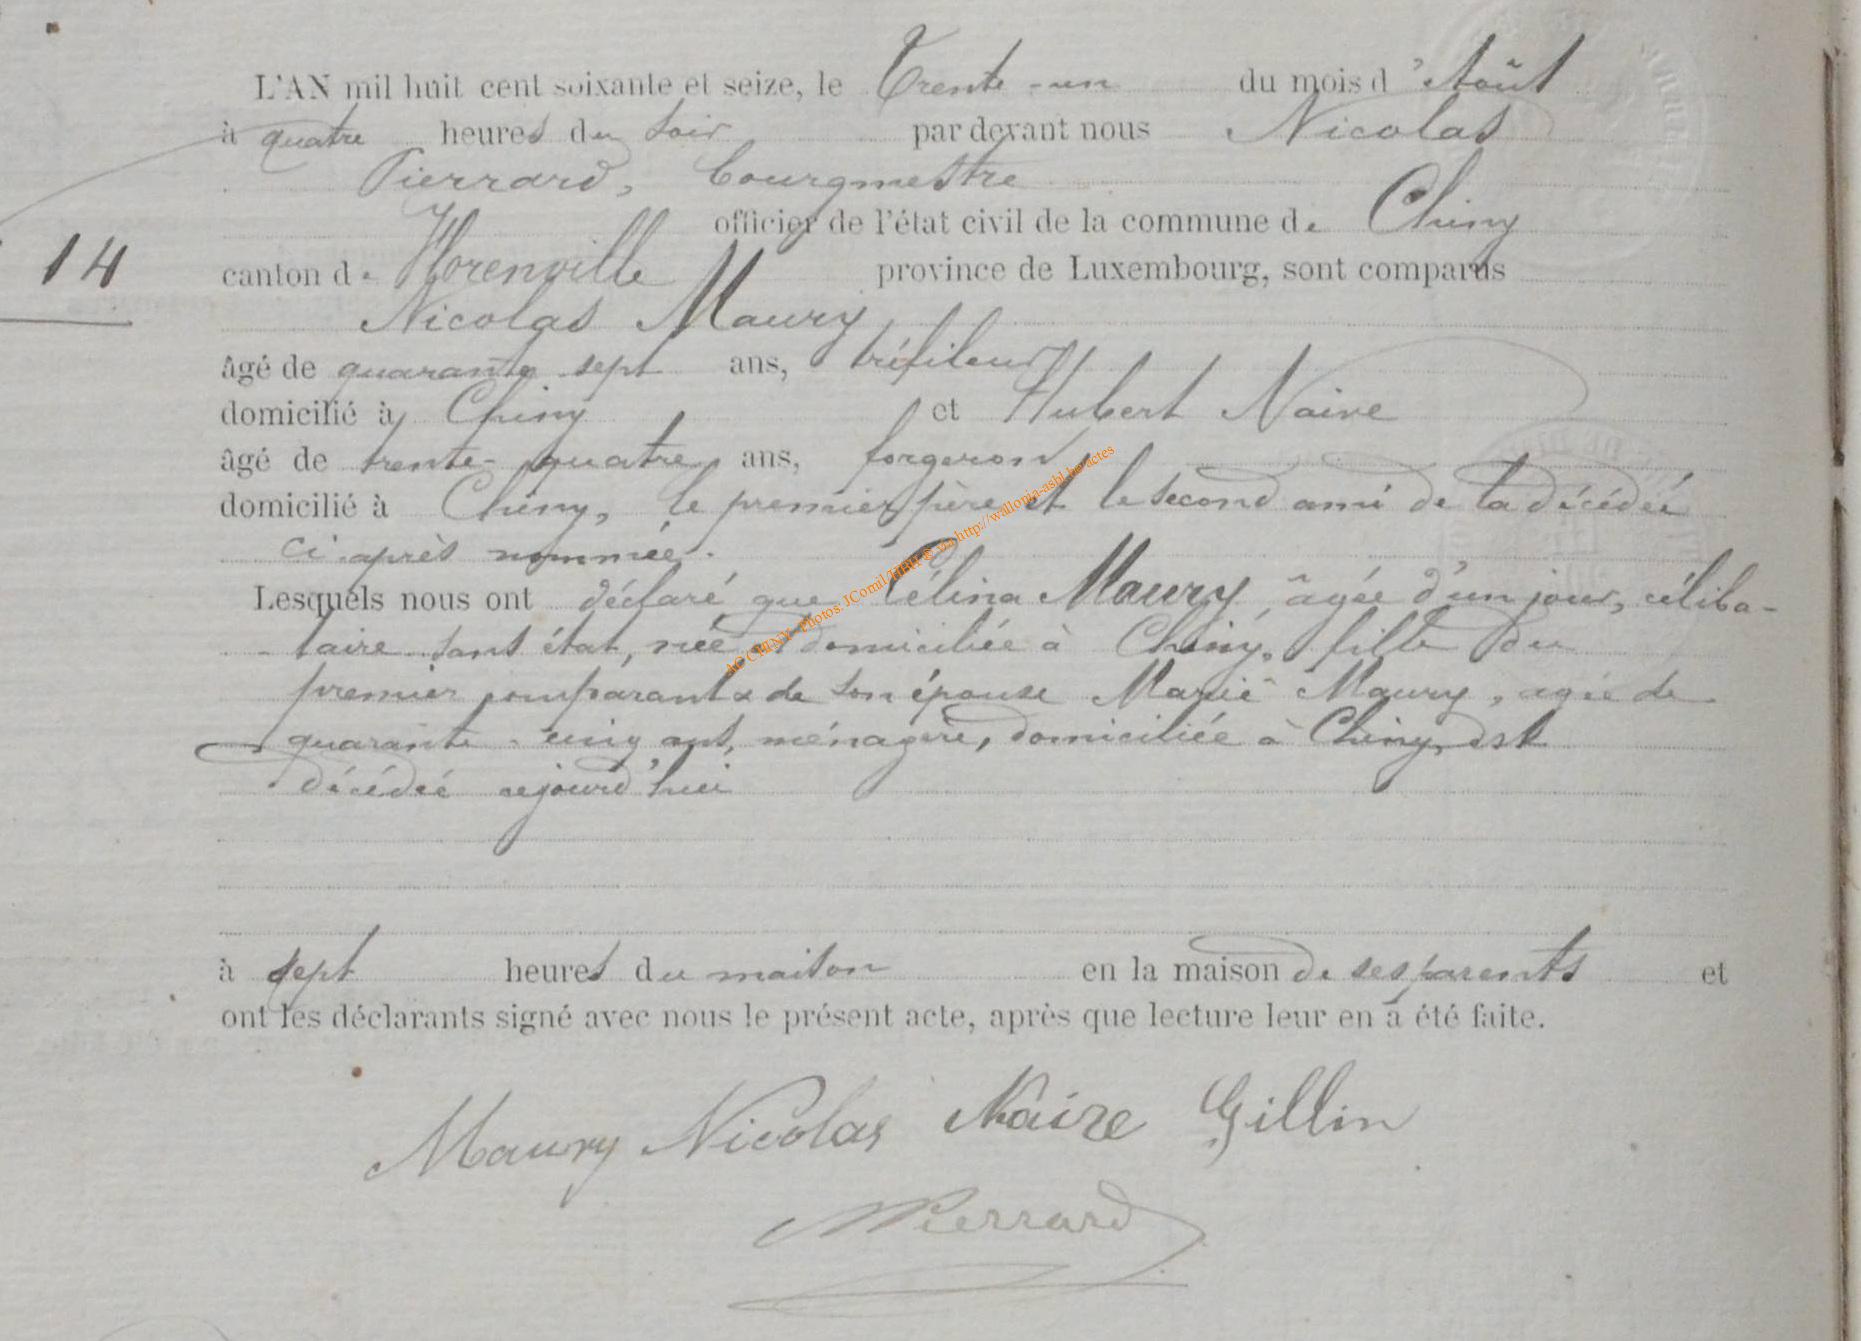 L'AN mil huit cent soixante et seize, le Trente-un du mois d'Août
à quatre heures du soir par devant nous Nicolas
Pierrard, bourgmestre
officier de l'état civil de la commune de Chiny
14
canton de Florenville province de Luxembourg, sont comparus
Nicolas Maury
âgé de quarante sept ans, tréfileur
domicilié à Chiny et Hubert Naive
âgé de trente-quatre ans, forgeron
domicilié à Chiny, le premier père et le second ami de la décédée
ci-après nommée.
Lesquels nous ont déclaré que Célina Maury âgée d'un jour, céliba-
-taire sans état, née et domiciliée à Chiny, fille du
premier comparant & de son épouse Marie Maury, agée de
quarante-cinq ans, ménagère, domiciliée à Chiny, est
décédée ajourd'hui
à sept heures du maison en la maison de ses parents et
ont les déclarants signé avec nous le présent acte, après que lecture leur en a été faite.
Maury Nicolas Naire Gillin
NPierrard
AC CHINY - Photos JComil/HBH © via http://wallonia-asbl.be/actes